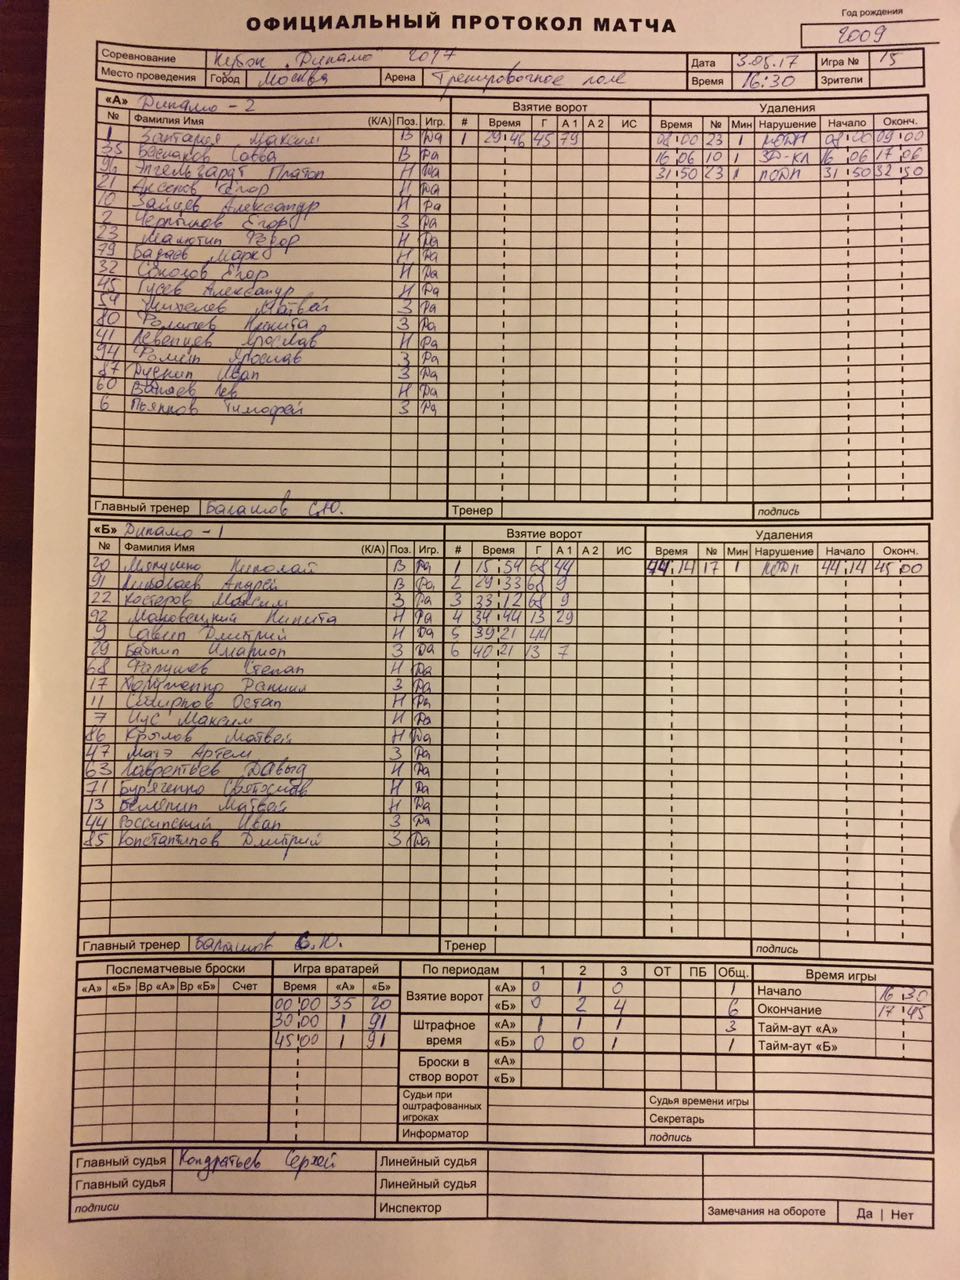 ОФИЦИАЛЬНЫЙ ПРОТОКОЛ МАТЧА
Год рождения
2009
Соревнование Кубок „Динамо" 2017 Дата 3.05.17 Игра № 15
Место проведения Город Москва Арена Тренировочное поле Время 16:30 Зрители
«А» Динамо - 2 Взятие ворот Удаления
№ Фамилия Имя (К/А) Поз. Игр. # Время Г А 1 А 2 ИС Время № Мин Нарушение Начало Оконч.
1 Максим В Да 1 29 46 45 79 08 00 23 1 08 00 09 00
35 Савва В Да 16 06 10 1 16 06 17 06
Платон Н Да 31 50 23 1 31 50 32 50
21 Аксенов Егор Н Да
10 Зайцев Александр Н Да
2 Егор З Да
23 Малютин Федор Н Да
79 Бадаев Марк Н Да
32 Соколов Егор Н Да
45 Гусев Александр Н Да
54 Матвей З Да
80 Никита З Да
41 Ярослав Н Да
94 Фомин Ярослав З Да
87 Иван З Да
60 Лев Н Да
6 Пьянков Тимофей З Да
Главный тренер Балашов С.Ю. Тренер подпись
«Б» Динамо - 1 Взятие ворот Удаления
№ Фамилия Имя (К/А) Поз. Игр. # Время Г А 1 А 2 ИС Время № Мин Нарушение Начало Оконч.
20 Николай В Да 1 15 54 68 44 44 14 17 1 44 14 45 00
91 Николаев Андрей В Да 2 29 33 68 9
22 Костеров Максим З Да 3 33 12 68 9
92 Маковецкий Никита Н Да 4 34 44 13 29
9 Савин Дмитрий Н Да 5 39 21 44
29 З Да 6 40 21 13 7
68 Степан Н Да
17 З Да
11 Смирнов Остап Н Да
7 Максим Н Да
86 Крылов Матвей Н Да
47 Артем З Да
63 Лаврентьев Давыд Н Да
71 Святослав Н Да
13 Матвей Н Да
44 Россинский Иван З Да
85 Константинов Дмитрий З Да
Главный тренер Балашов С.Ю. Тренер подпись
Послематчевые броски Игра вратарей По периодам 1 2 3 ОТ ПБ Общ. Время игры
«А» «Б» Вр «А» Вр «Б» Счет Время «А» «Б»
Взятие ворот «А» 0 1 0 1 Начало 16 30
00 00 35 20 «Б» 0 2 4 6 Окончание 17 45
30 00 1 91 Штрафное время «А» 1 1 1 3 Тайм-аут «А»
45 00 1 91 «Б» 0 0 1 1 Тайм-аут «Б»
Броски в створ ворот «А»
«Б»
Судьи при оштрафованных игроках Судья времени игры
Секретарь
Информатор подпись
Главный судья Кондратьев Сергей Линейный судья
Главный судья Линейный судья
подписи Инспектор Замечания на обороте Да | Нет